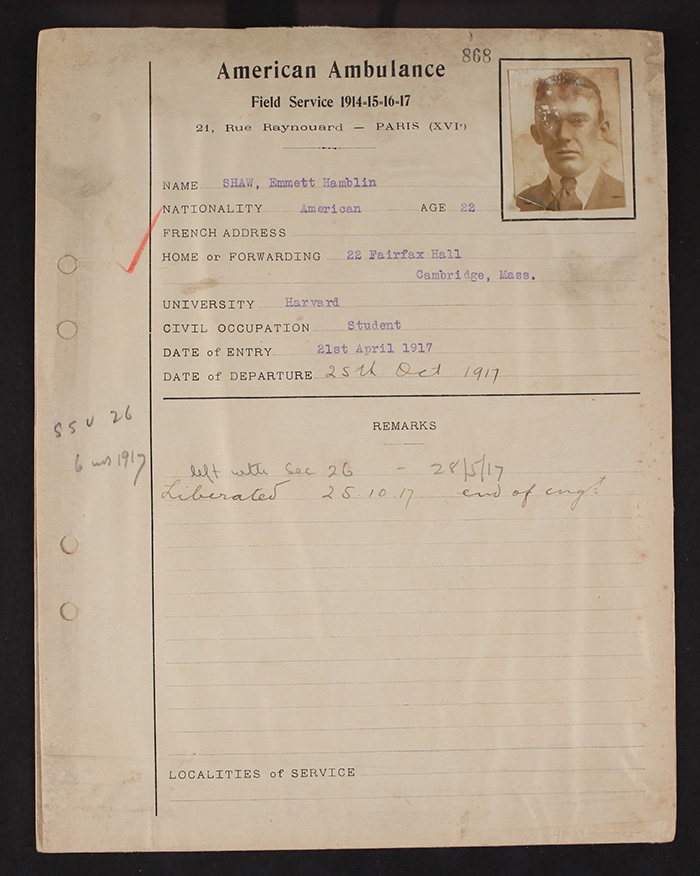 868
American Ambulance
Field Service 1914-15-16-17
21, Rue Raynouard — PARIS (XVIe)
NAME SHAW, Emmett Hamblin
NATIONALITY American AGE 22
FRENCH ADDRESS
HOME or FORWARDING 22 Fairfax Hall
Cambridge, Mass.
UNIVERSITY Harvard
CIVIL OCCUPATION Student
DATE of ENTRY 21st April 1917
DATE of DEPARTURE 25th Oct 1917
REMARKS
SSU 26
6 mos 1917
left with Sec 26 - 28/5/17
Liberated 25.10.17 end of engt.
LOCALITIES of SERVICE